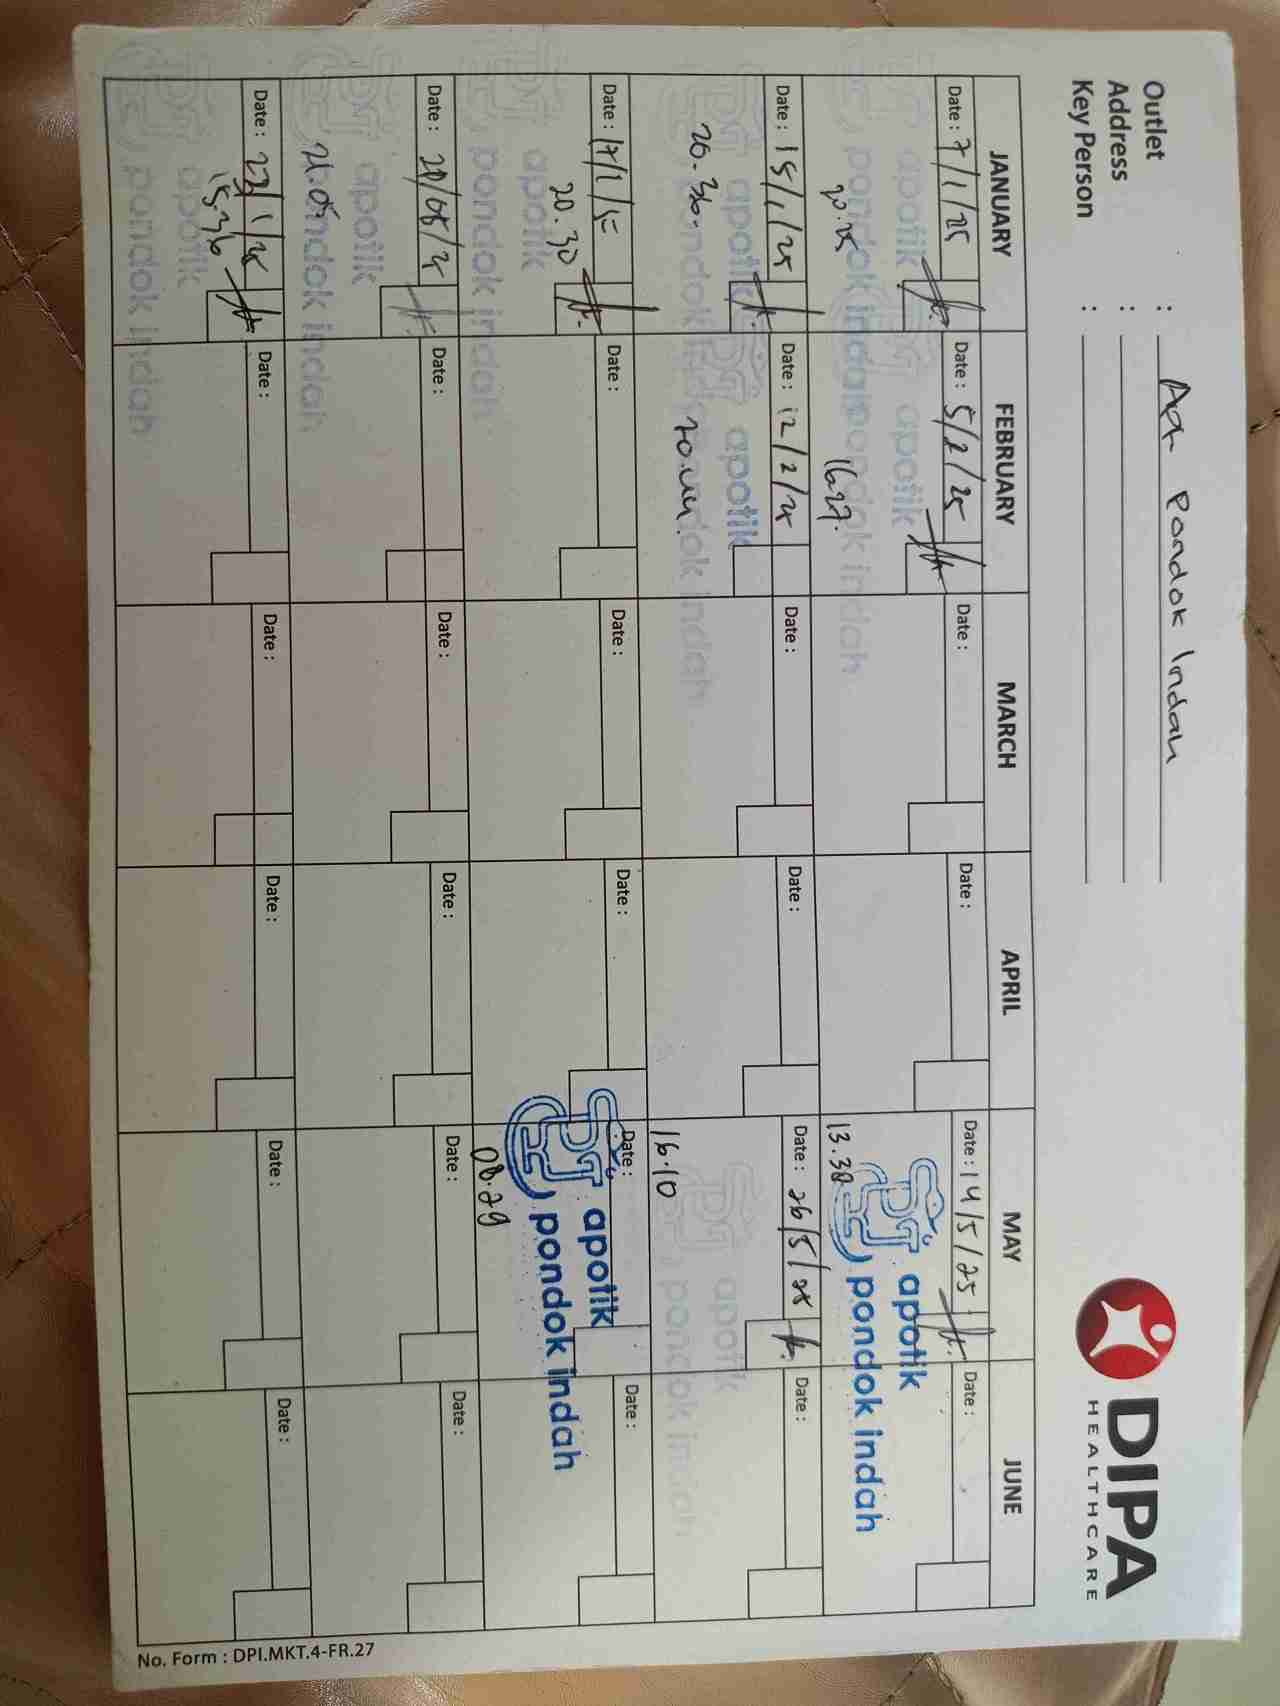 Outlet : Apt Pondok Indah
Address :
Key Person :
DIPA
HEALTHCARE
JANUARY FEBRUARY MARCH APRIL MAY JUNE
Date : 7/1/25 Date : 5/2/25 Date : Date : Date : 14/5/25 Date :
16.27. 13.38
apotik apotik apotik
pondok indah pondok indah pondok indah
Date : 15/1/25 Date : 12/2/25 Date : Date : Date : 26/5/25 Date :
20.30. 16.10
apotik apotik apotik
pondok indah pondok indah pondok indah
Date : 17/1/25 Date : Date : Date : Date : Date :
20.30 08.29
apotik apotik
pondok indah pondok indah
Date : Date : Date : Date : Date : Date :
21.05
apotik
pondok indah
Date : 23/1/25 Date : Date : Date : Date : Date :
15.36
apotik
pondok indah
No. Form : DPI.MKT.4-FR.27